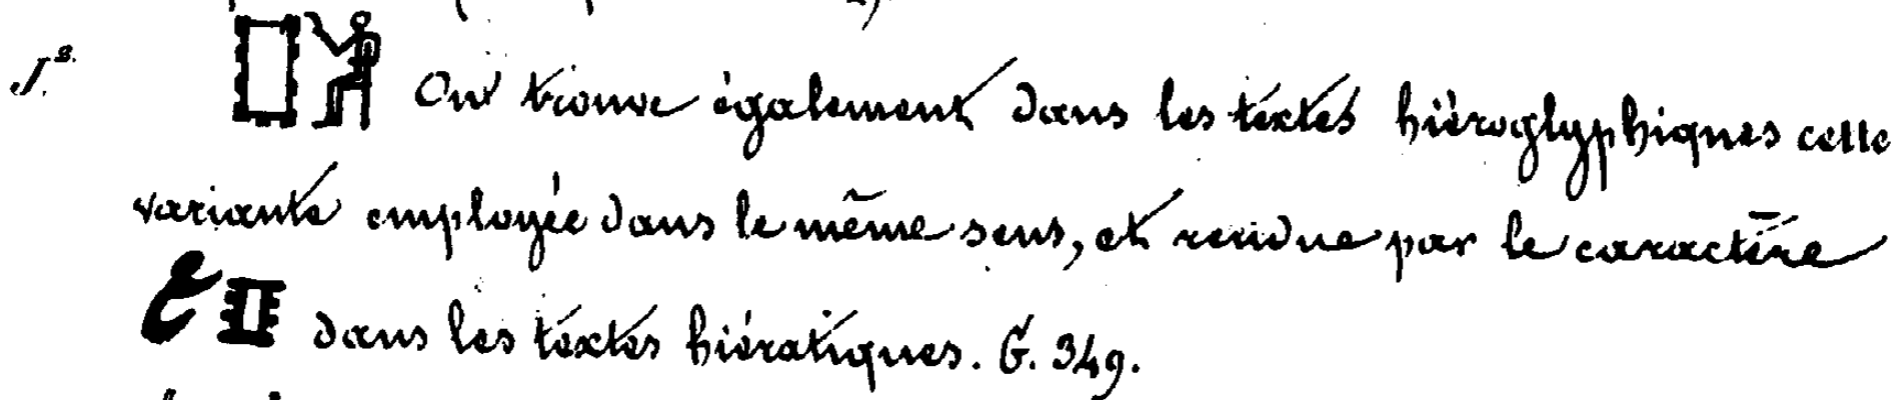 J². On trouve également dans les textes hiéroglyphiques cette
variante employée dans le même sens, et rendue par le caractère
dans les textes hiératiques. G. 349.